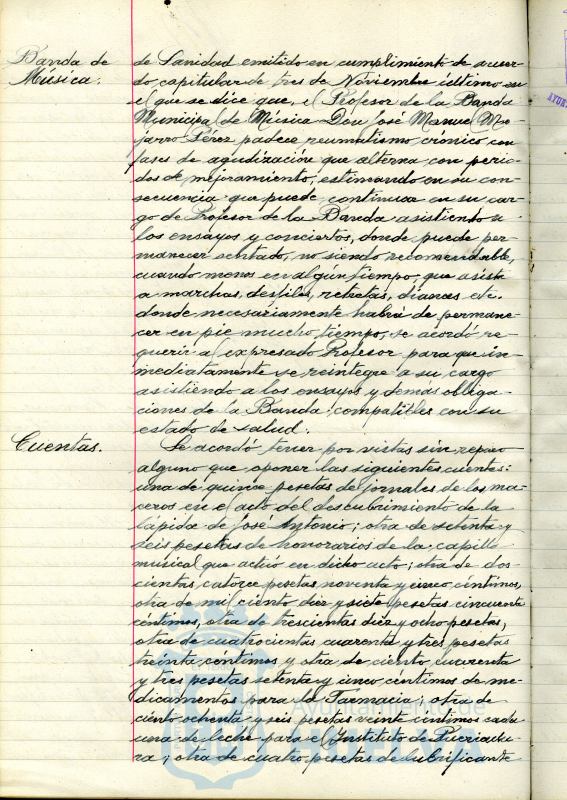 Banda de
Música.
de Sanidad emitido en cumplimiento de acuer-
do capitular de tres de Noviembre último en
el que se dice que, el Profesor de la Banda
Municipal de Música Don José Manuel Mo-
jarro Pérez padece reumatismo crónico con
fases de agudización que alterna con perío-
dos de mejoramiento, estimando en su con-
secuencia que puede continuar en su car-
go de Profesor de la Banda asistiendo a
los ensayos y conciertos, donde puede per-
manecer sentado, no siendo recomendable,
cuando menos en algún tiempo, que asista
a marchas, desfiles, retretas, dianas etc.
donde necesariamente habrá de permane-
cer en pie mucho tiempo, se acordó re-
querir al expresado Profesor para que in-
mediatamente se reintegre a su cargo
asistiendo a los ensayos y demás obliga-
ciones de la Banda compatibles con su
estado de salud.
Cuentas.
Se acordó tener por vistas sin reparo
alguno que oponer las siguientes cuentas:
una de quince pesetas de jornales de los ma-
ceros en el acto del descubrimiento de la
lápida de José Antonio; otra de setenta y
seis pesetas de honorarios de la capilla
musical que actuó en dicho acto; otra de dos-
cientas catorce pesetas noventa y cinco céntimos,
otra de mil ciento diez y siete pesetas cincuenta
céntimos, otra de trescientas diez y ocho pesetas,
otra de cuatrocientas cuarenta y tres pesetas
treinta céntimos y otra de ciento cuarenta
y tres pesetas setenta y cinco céntimos de me-
dicamentos para la Farmacia; otra de
ciento ochenta y seis pesetas veinte céntimos cada
una de leche para el Instituto de Puericultu-
ra; otra de cuatro pesetas de lubrificante
Ayuntamiento de
HUELVA